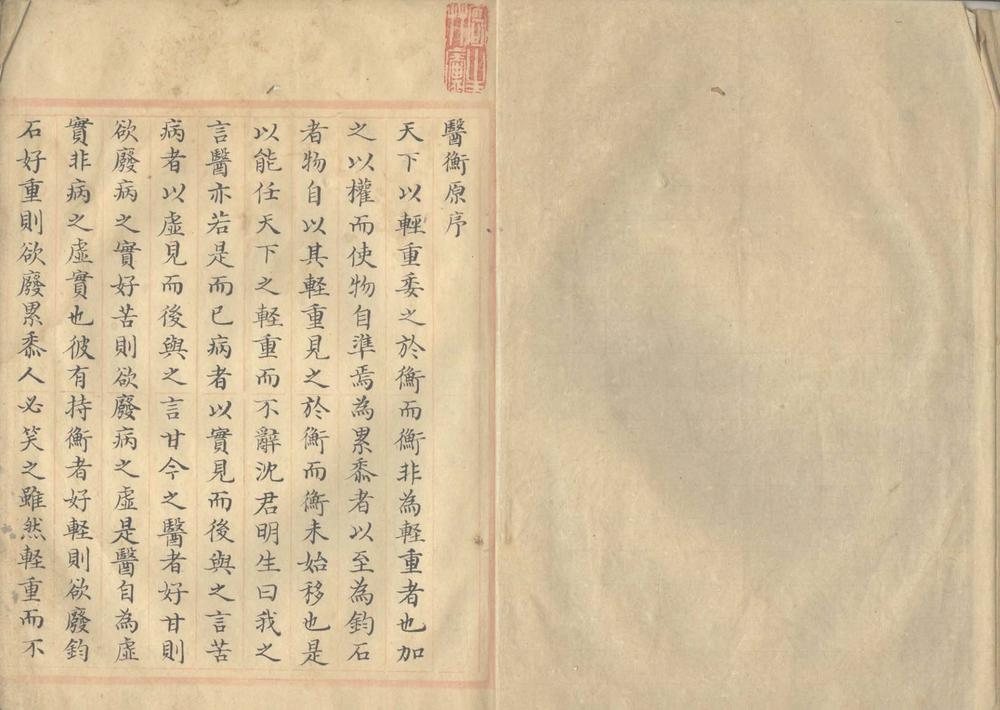 醫衡原序
天下以輕重委之於衡而衡非為輕重者也加
之以權而使物自準焉為累黍者以至為鈞石
者物自以其輕重見之於衡而衡未始移也是
以能任天下之輕重而不辭沈君明生曰我之
言醫亦若是而已病者以實見而後與之言苦
病者以虛見而後與之言甘今之醫者好甘則
欲廢病之實好苦則欲廢病之虛是醫自為虛
實非病之虛實也彼有持衡者好軽則欲廢鈞
石好重則欲廢累黍人必笑之雖然軽重而不